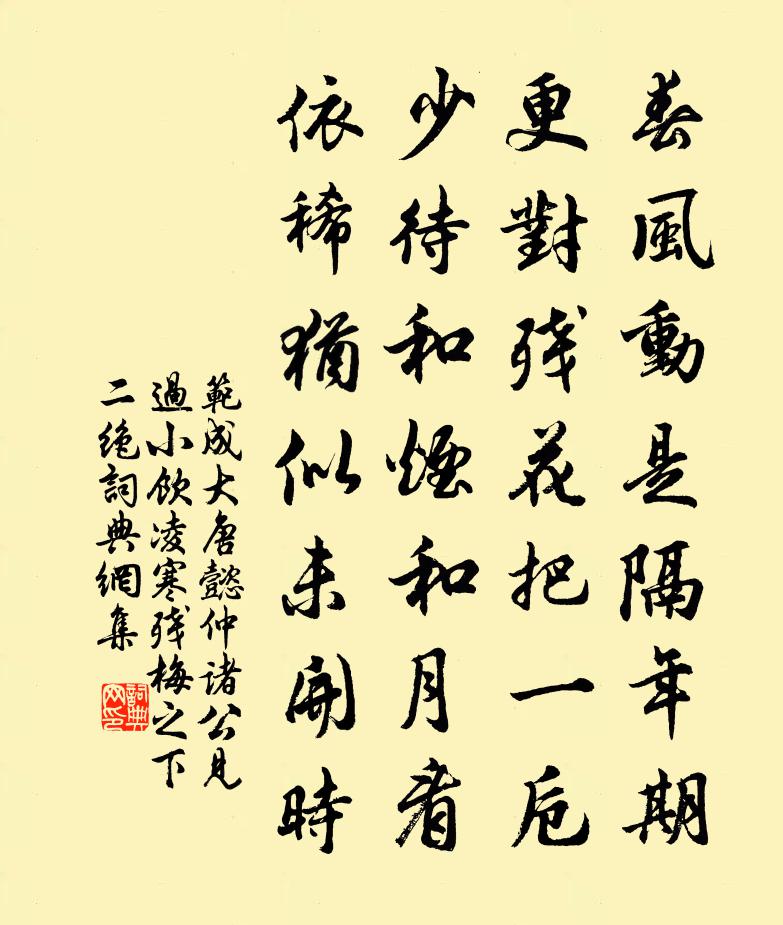 春風動是隔年期
更對殘花把一卮
少待和煙和月看
依稀猶似未開時
範成大唐懿仲諸公見
過小飲凌寒殘梅之下
二絶詞典網集
詞典网印